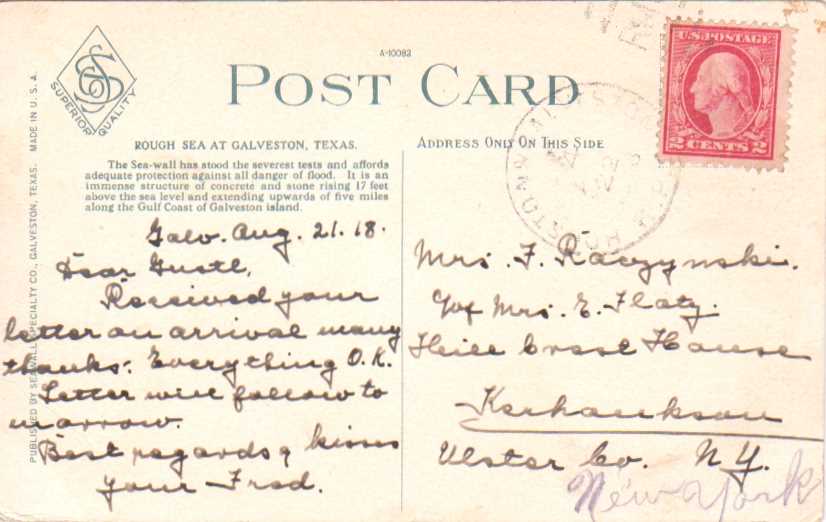 A-10083
POST CARD
SSC
SUPERIOR QUALITY
ROUGH SEA AT GALVESTON, TEXAS.
The Sea-wall has stood the severest tests and affords
adequate protection against all danger of flood. It is an
immense structure of concrete and stone rising 17 feet
above the sea level and extending upwards of five miles
along the Gulf Coast of Galveston island.
ADDRESS ONLY ON THIS SIDE
U.S. POSTAGE
2 CENTS 2
PUBLISHED BY SEAWALL SPECIALTY CO., GALVESTON, TEXAS. MADE IN U.S.A.
Galv. Aug. 21. 18.
Dear Gustl,
Received your
letter on arrival many
thanks. Everything O.K.
Letter will follow to
morrow.
Best regards & kisses
your Fred.
Mrs. F. Raczynski.
Mrs. E. Flaty.
Hill Crest House
Kerhonkson
Ulster Co. N.Y.
New York